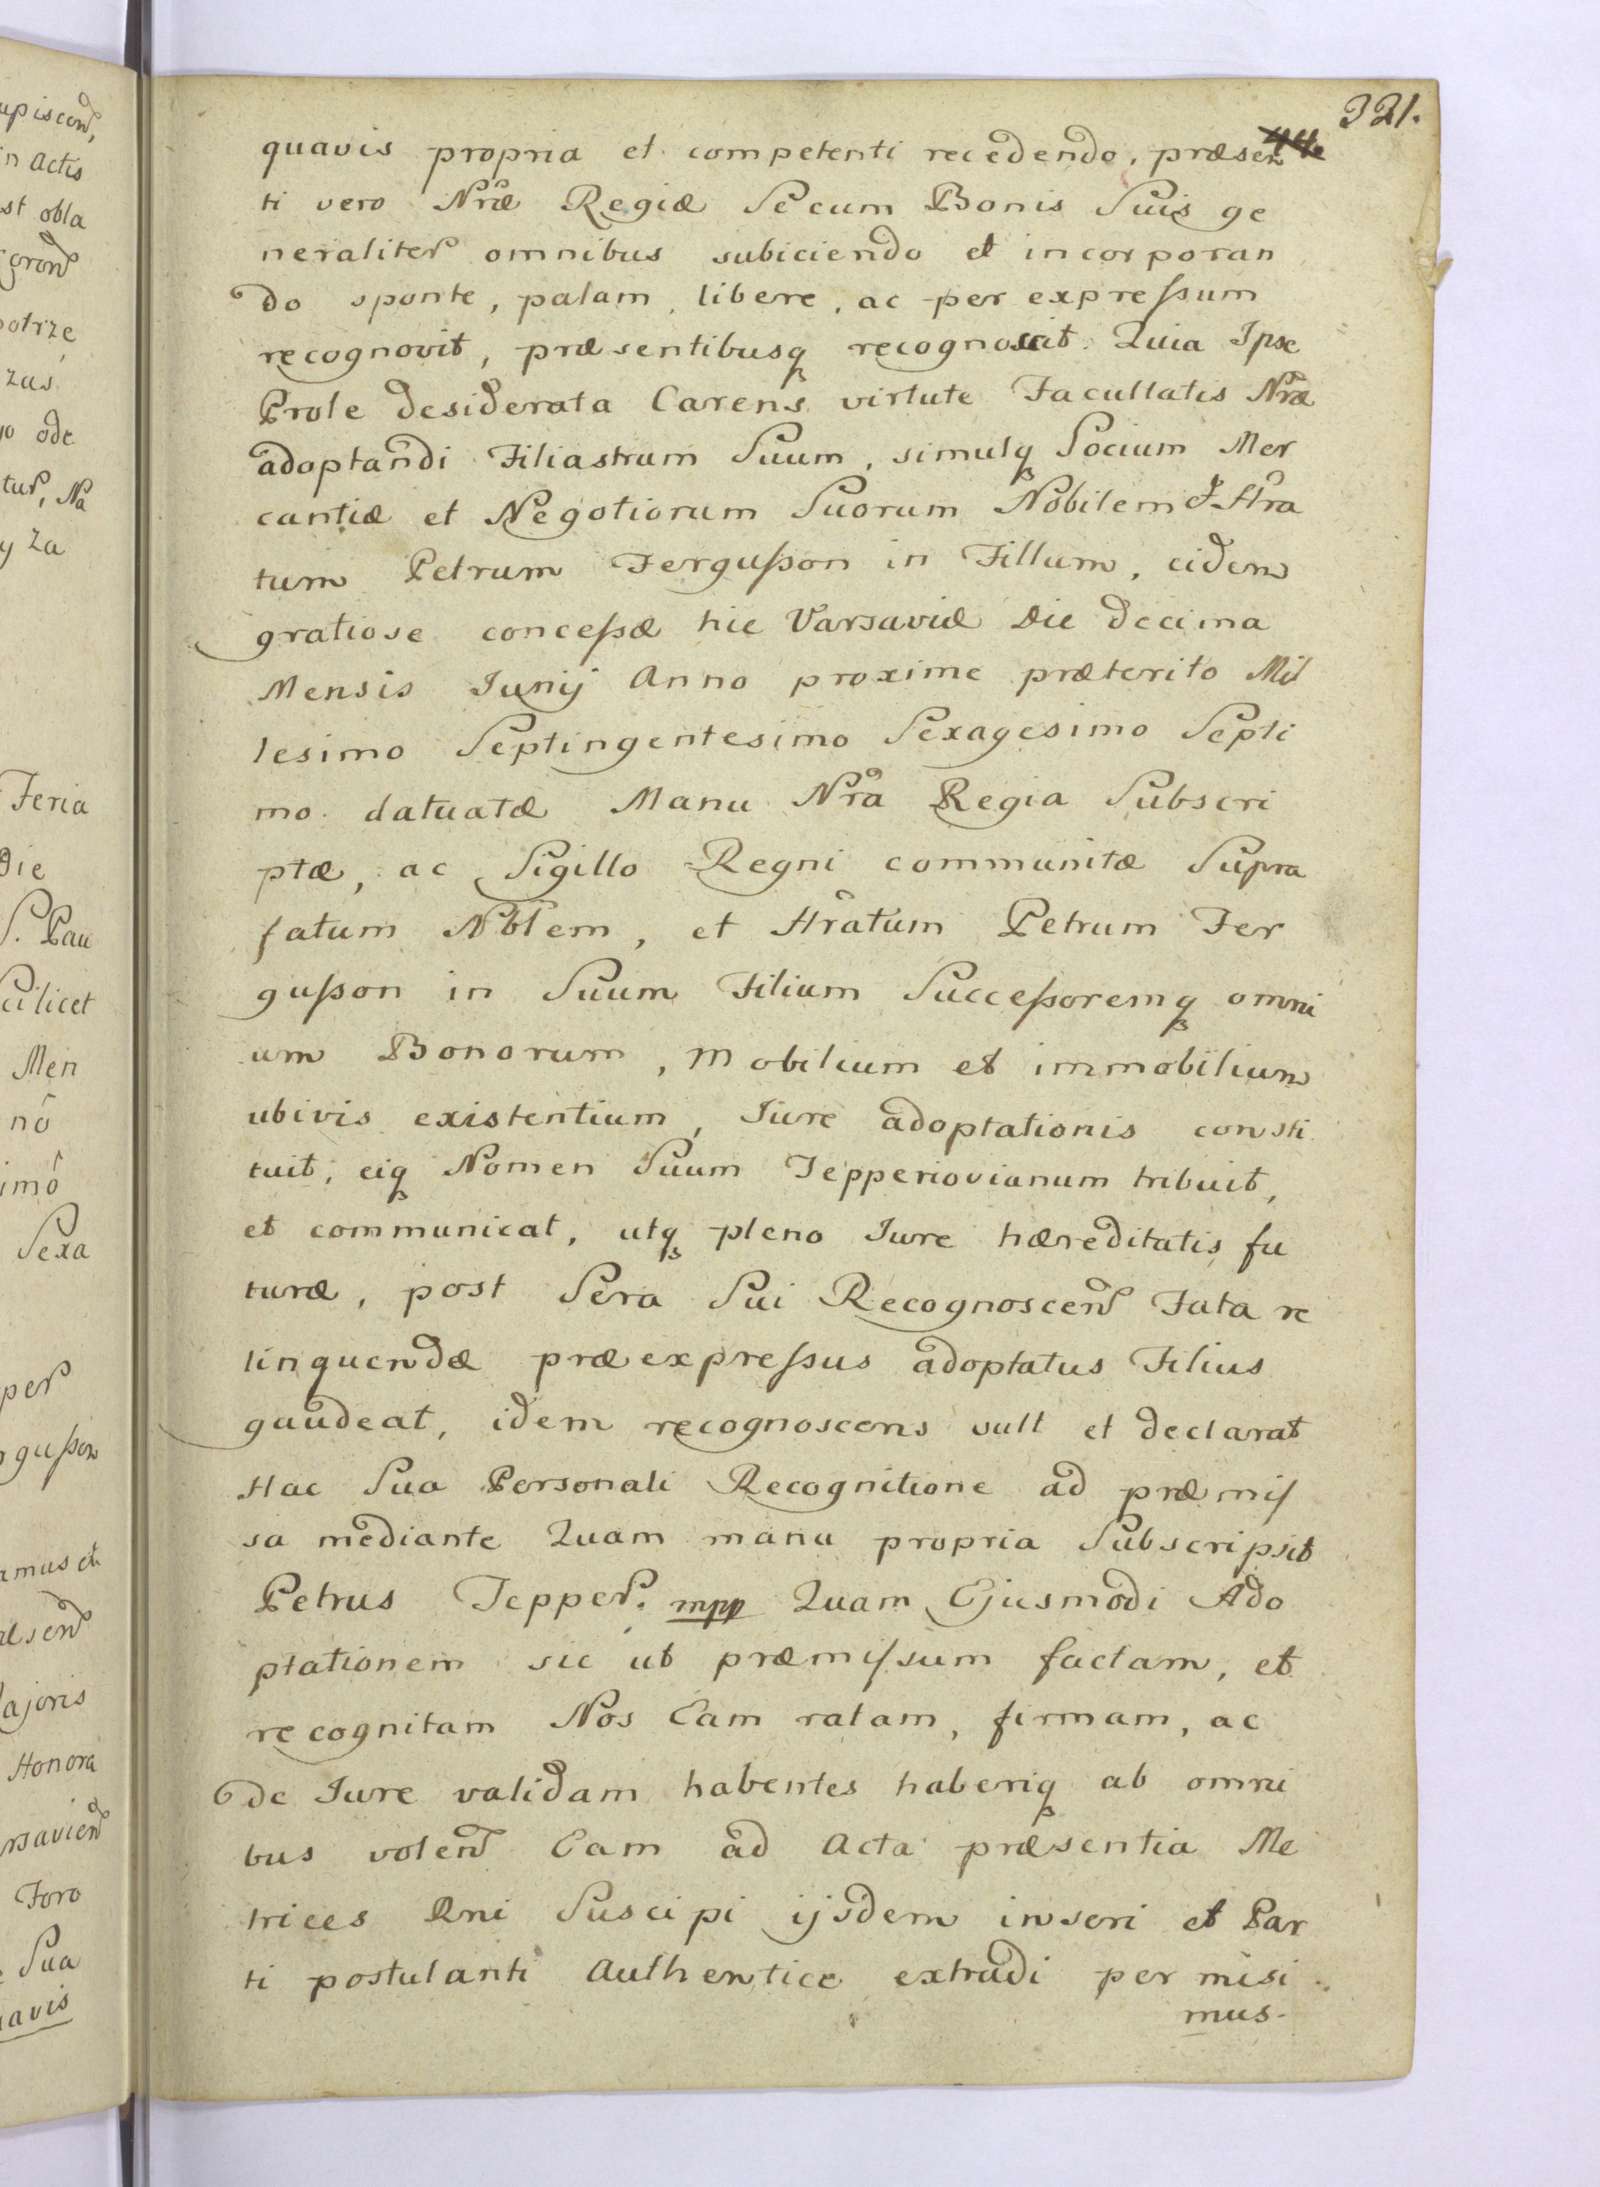 321.
44.
quavis propria et competenti recedendo, præsen
ti vero Nræ Regiæ Se cum Bonis Suis ge
neraliter omnibus subiciendo et incorporan
do sponte, palam, libere, ac per expreſsum
recognovit, præsentibusq recognoscit. Quia Ipse
Prole desiderata Carens virtute Facultatis Nræ
adoptandi Filiastrum Suum, simulq Socium Mer
cantiæ et Negotiorum Suorum Nobilem & Hra
tum Petrum Ferguſson in Fillum, eidem
gratiose conceſsæ hic Varsaviæ Die decima
Mensis Junij Anno proxime præterito Mil
lesimo Septingentesimo Sexagesimo Septi
mo datuatæ Manu Nra Regia Subscri
ptæ, ac Sigillo Regni communitæ Supra
fatum Nblem, et Hratum Petrum Fer
guſson in Suum Filium Succeſsoremq omni
um Bonorum, Mobilium et immobilium
ubivis existentium, Jure adoptationis consti
tuit, eiq Nomen Suum Tepperiovianum tribuit,
et communicat, utq pleno Jure hæreditatis fu
turæ, post Sera Sui Recognoscen Fata re
linquendæ præexpreſsus adoptatus Filius
gaudeat, idem recognoscens vult et declarat
Hac Sua Personali Recognitione ad præmiſ
sa mediante Quam manu propria Subscripsit
Petrus Tepper. mpp Quam Ejusmodi Ado
ptationem sic ut præmiſsum factam, et
recognitam Nos Eam ratam, firmam, ac
de Jure validam habentes haberiq ab omni
bus volen Eam ad Acta præsentia Me
trices Rni Suscipi ijsdem inseri et Par
ti postulanti Authentice extradi per misi
mus.